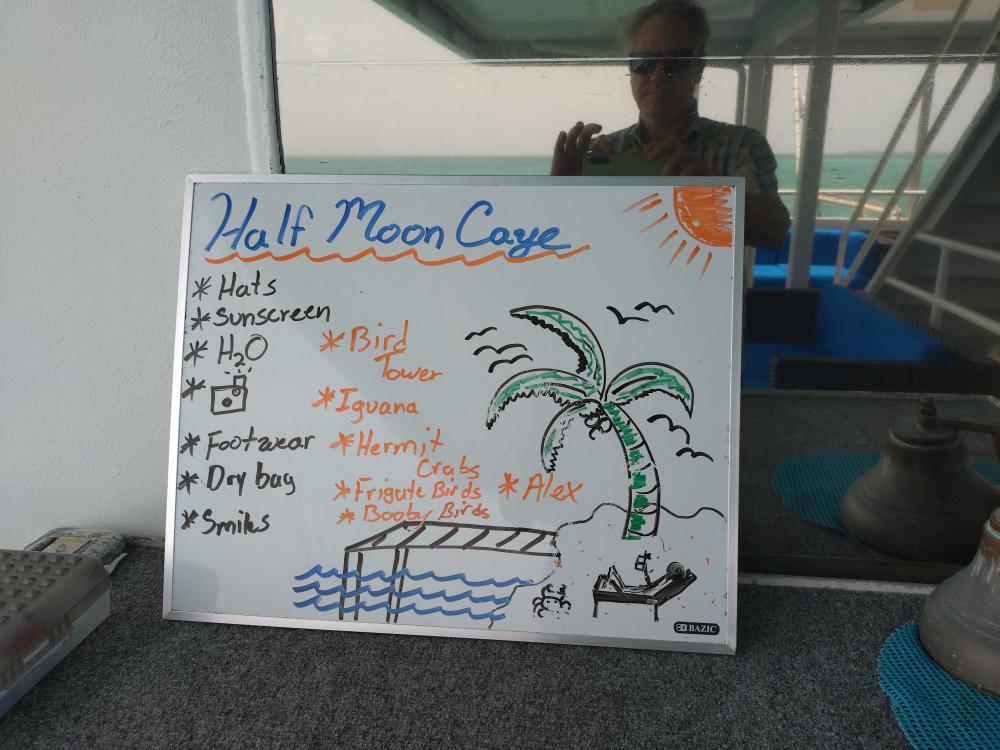 Half Moon Caye
* Hats
* Sunscreen
* H₂O
*
* Footwear
* Dry bag
* Smiles
* Bird
Tower
* Iguana
* Hermit
Crabs
* Frigate Birds
* Booby Birds
* Alex
BAZIC